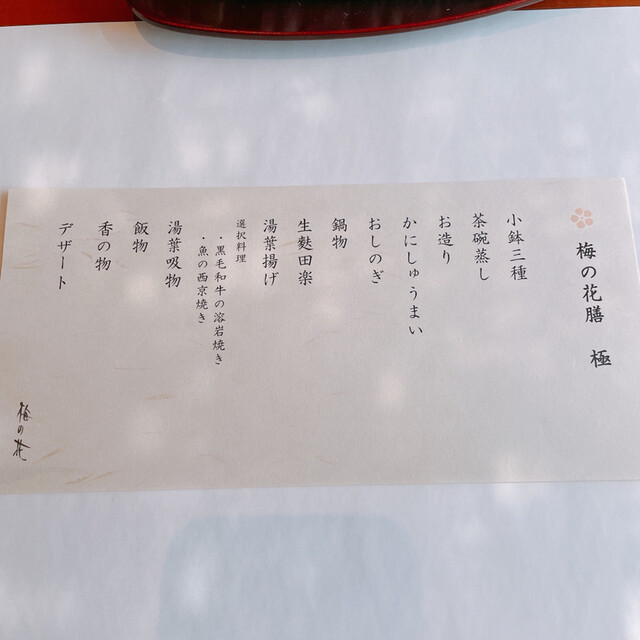 梅の花膳　極
小鉢三種
茶碗蒸し
お造り
かにしゅうまい
おしのぎ
鍋物
生麩田楽
湯葉揚げ
選択料理
・黒毛和牛の溶岩焼き
・魚の西京焼き
湯葉吸物
飯物
香の物
デザート
梅の花